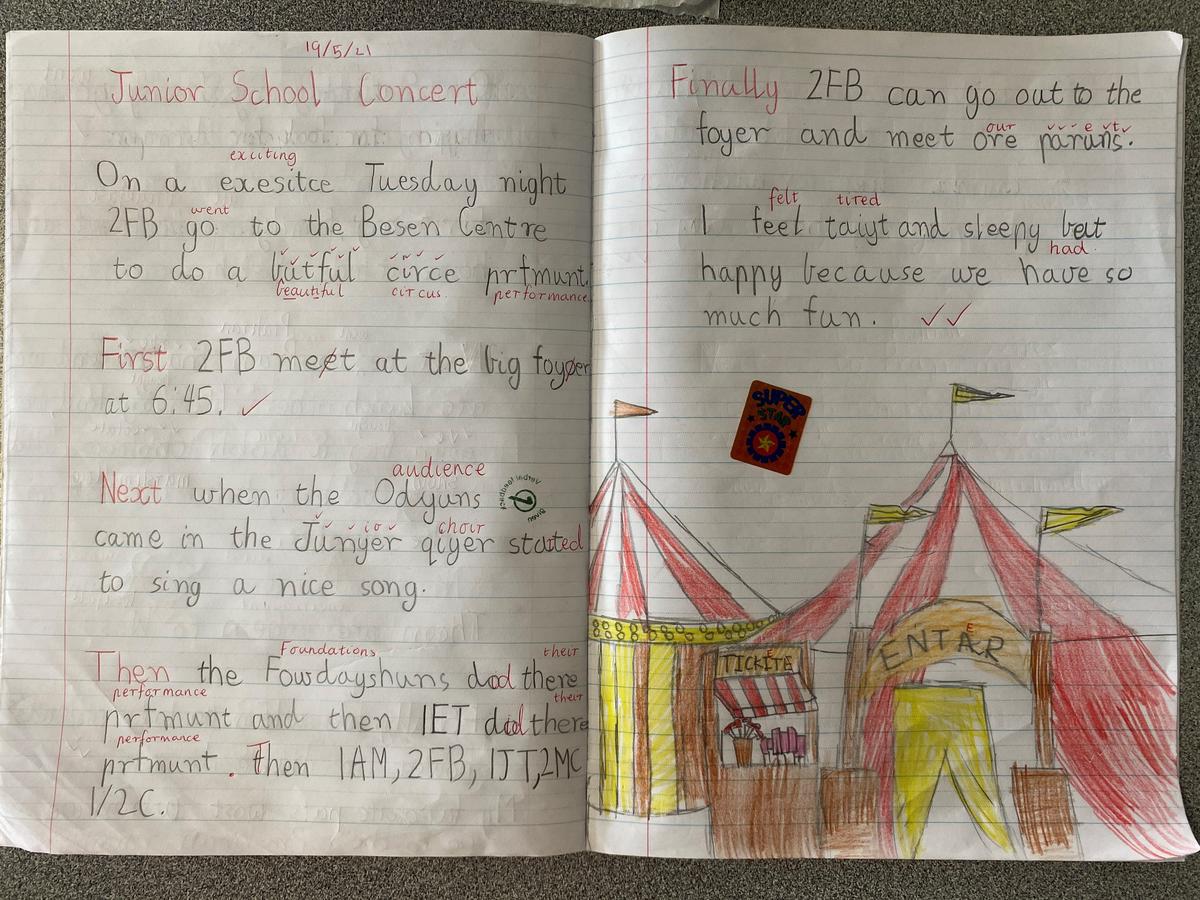 19/5/21
Junior School Concert
exciting
On a exesitce Tuesday night
went
2FB go to the Besen Centre
to do a butful circe prfmunt.
beautiful circus performance
First 2FB meet at the big foyer
at 6:45.
audience
Next when the Odyuns
ior choir
came in the Junyer qiyer started
to sing a nice song.
Foundations their
Then the Fowdayshuns did there
performance their
prfmunt and then 1ET did there
performance
prtmunt. Then 1AM, 2FB, 1JT, 2MC
1/2C.
Finally 2FB can go out to the
our e t
foyer and meet ore paruns.
felt tired
I feel taiyt and sleepy but
had
happy because we have so
much fun.
SUPER
STAR
TICKITE
E
ENTAER